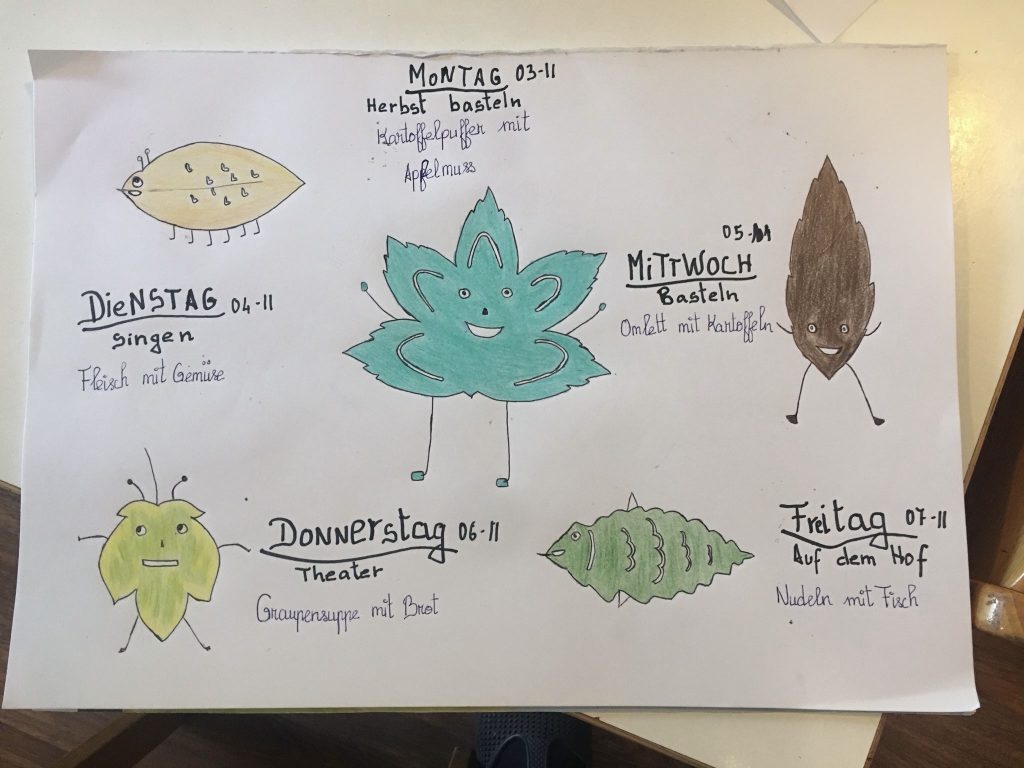 MONTAG 03-11
Herbst basteln
Kartoffelpuffer mit
Apfelmuss
DIENSTAG 04-11
singen
Fleisch mit Gemüse
05-11
MITTWOCH
Basteln
Omlett mit Kartoffeln
DONNERSTAG 06-11
Theater
Graupensuppe mit Brot
Freitag 07-11
Auf dem Hof
Nudeln mit Fisch